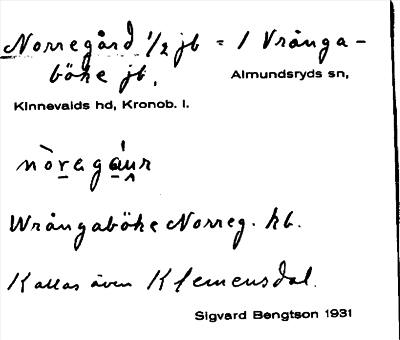 Norregård 1/2 jb = 1 Vrånga-
böke jb.
Almundsryds sn,
Kinnevalds hd, Kronob. l.
nòragáur
Wrångaböke Norreg. hb.
Kallas även Klemensdal.
Sigvard Bengtson 1931